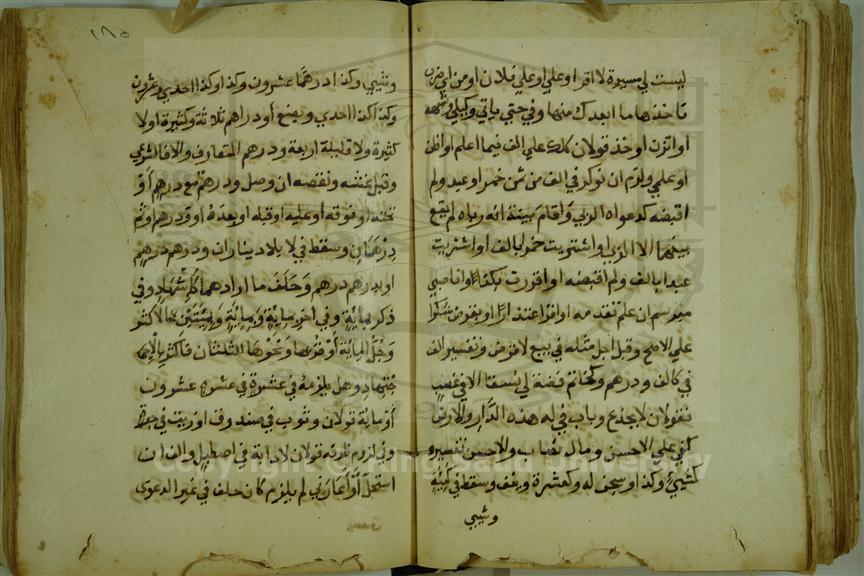 ليست لي ميسرة لا اقر او علي او علي فلان او من اي ضرب
تاخذها ما ابعدك منها وفي حتي ياتي وكيلي وشبهه
او اتزن او خذ قولان كلك علي الف فيما اعلم او اظن
او علمي ولزم ان نوكر في الف من ثمن خمر او عبد ولم
اقبضه كدعواه الربي واقام بينة انه راباه لم يقع
بينهما الا الربي او اشتريت خمرا بالف او اشتريت
عبدا بالف ولم اقبضه او اقررت بكذا وانا صبي
مبرسم ان علم تقدمه او اقر اعتذارا او بقرض شكرا
علي الاصح وقبل اجل مثله في بيع لا قرض وتفسير الف
في كالف ودرهم وخاتم فضه لي نسقا الا في غصب
فقولان لا بجذع وباب في له هذه الدار والارض
كفي علي الاحسن ومال نصاب والاحسن تفسيره
كشيء وكذا وسجن له وكعشرة ونيف وسقط في كمئة
وشيي
١٨٥
وشيي وكذا درهما عشرون وكذا وكذا احدي وعشرون
وكذا كذا احدي وبضع او دراهم ثلاثة وكثيرة او لا
كثيرة ولا قليلة اربعة ودرهم المتعارف والا فالشرعي
وقبل غشه ونقصه ان وصل ودرهم مع درهم او
تحته او فوقه او عليه او قبله او بعده او فدرهم او ثم
درهمان وسقط في لا بل ديناران ودرهم درهم
او بدرهم درهم وحلف ما ارادهما كاشهاد في
ذكر بماية وفي اخر بماية وبماية وبمئتين الاكثر
وجل الماية او قربها ونحوها الثلثان فاكثر بالا
جتهاد وهل يلزمه في عشرة في عشرة عشرون
او ماية قولان وثوب في صندوق او زيت في جرة
وفي لزوم ظرفه قولان لا دابة في اصطبل والف ان
استحل او اعارني لم يلزم كان حلف في غير الدعوي
Copyright © King Saud University